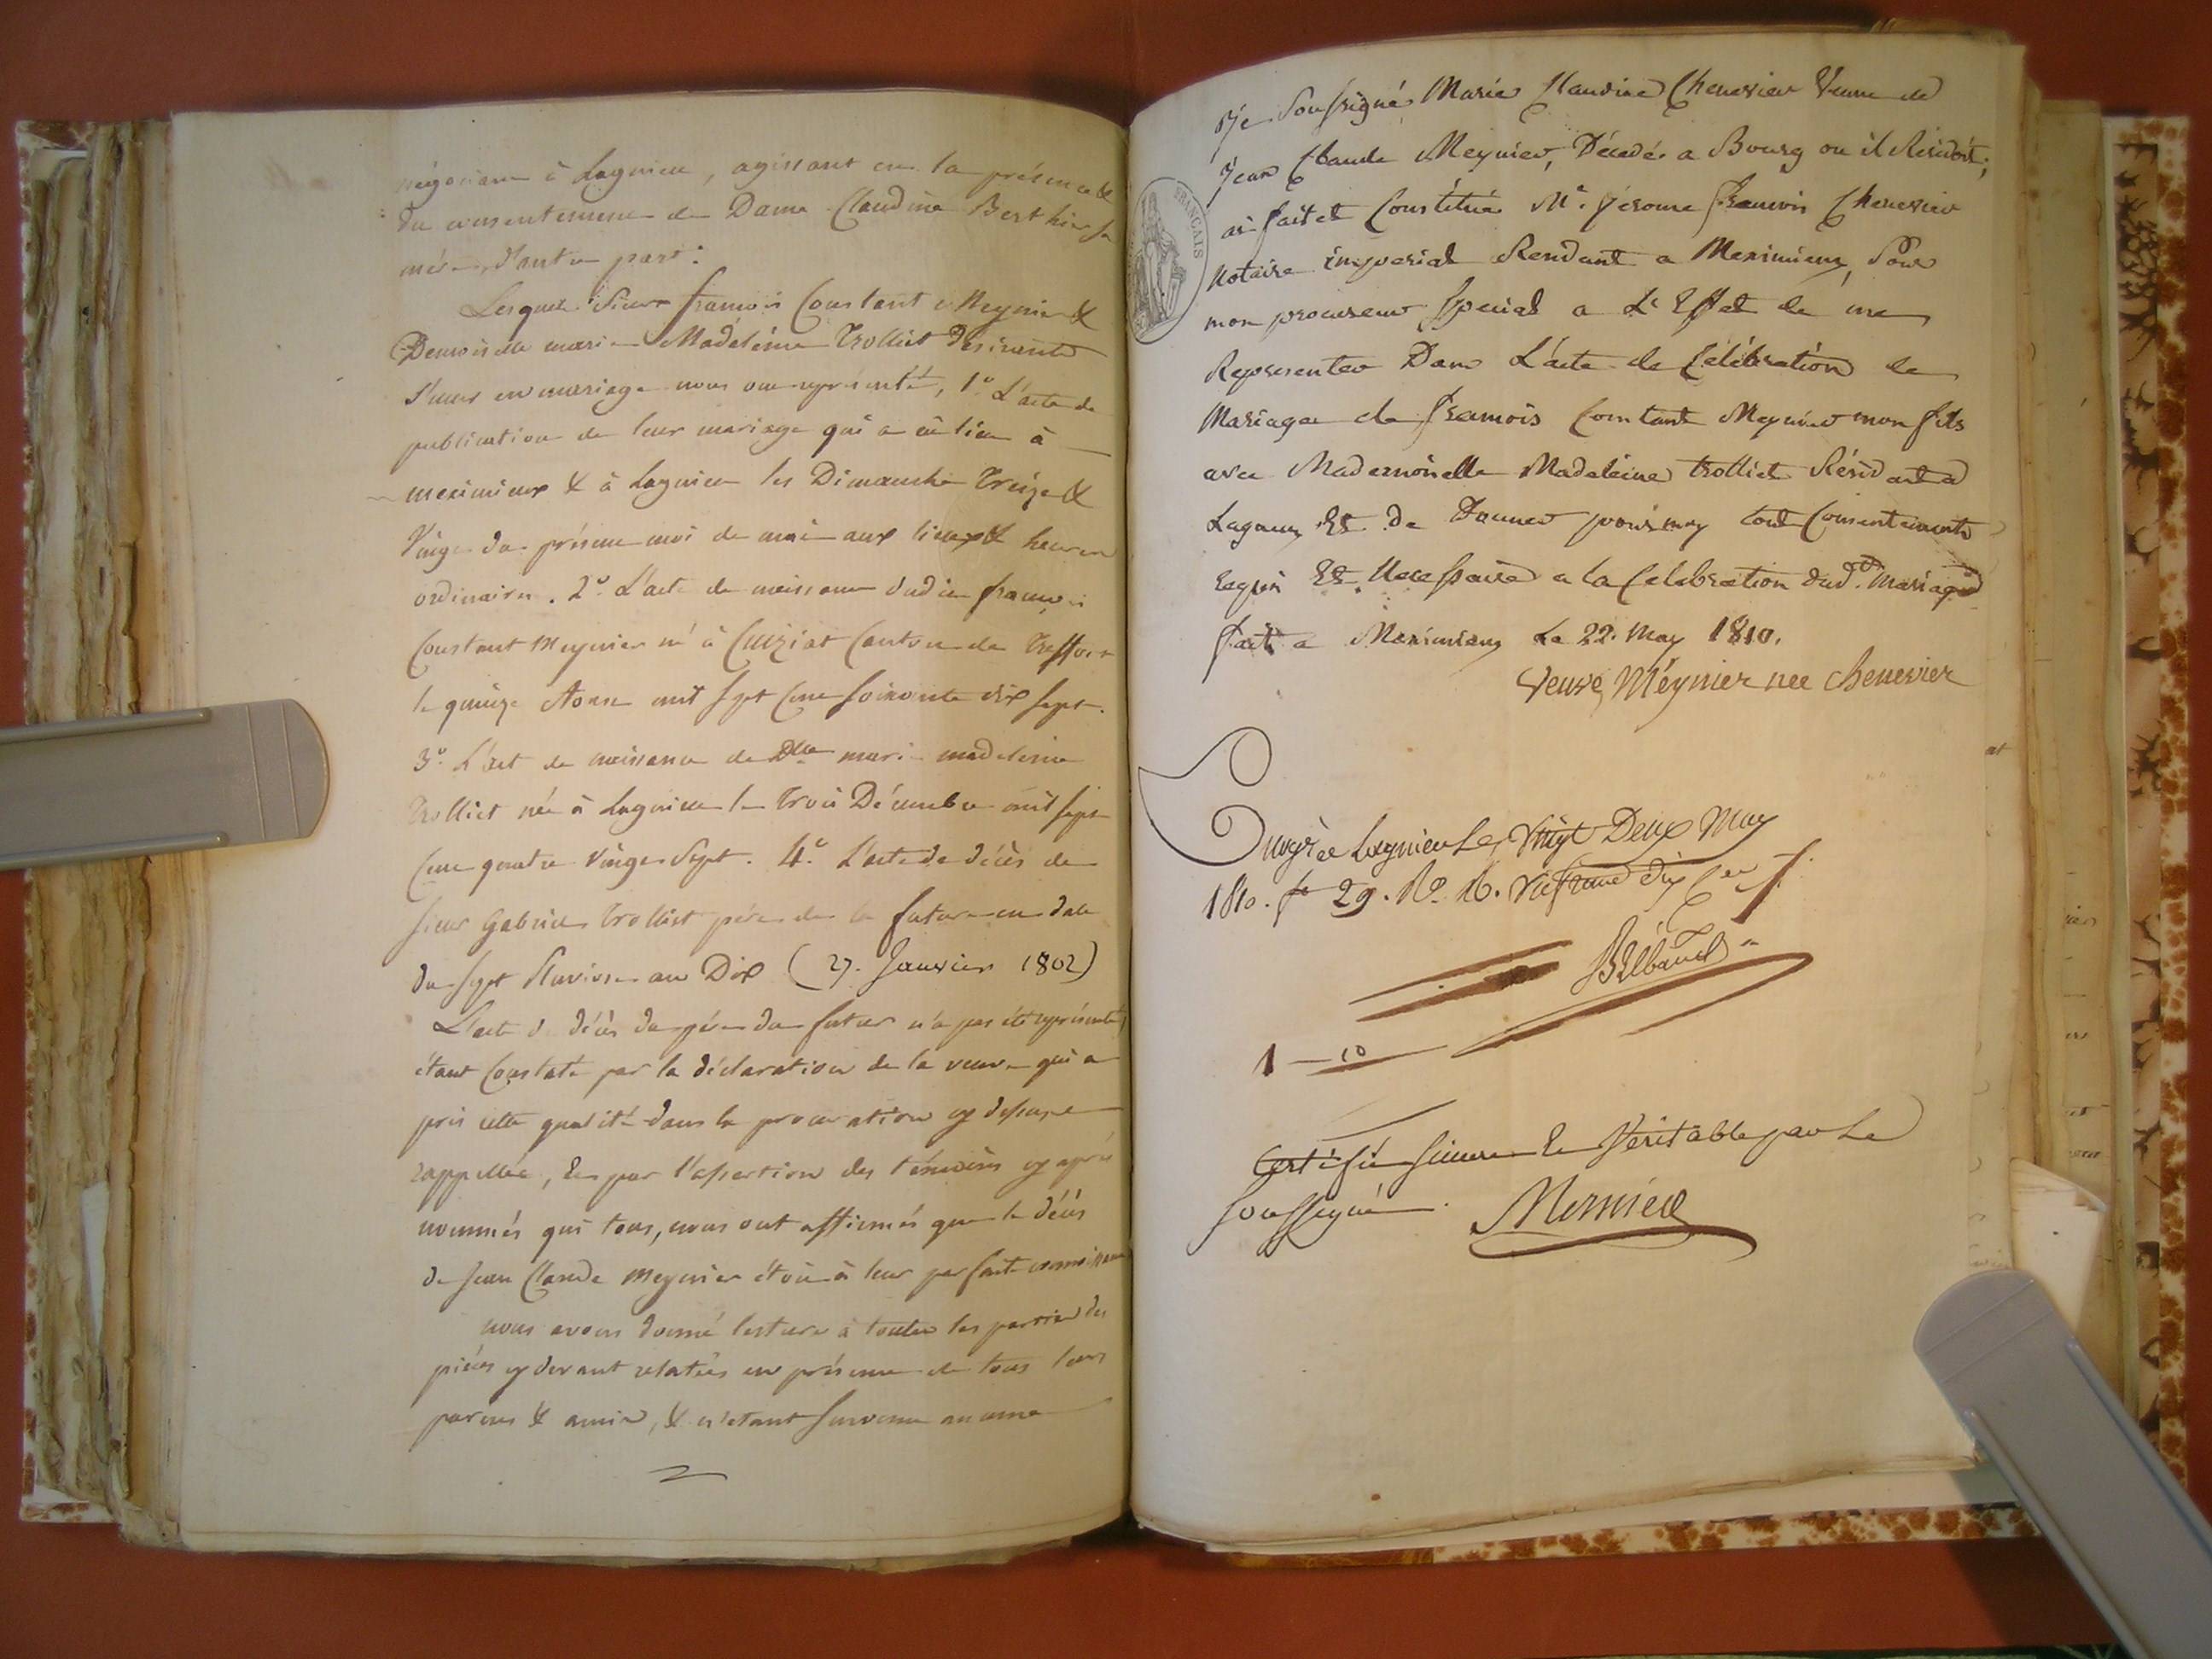 négociant à Lagnieu, agissant en la présence &
du consentement de Dame Claudine Berthier sa
mère, d'autre part :
Lesquels Sieur françois Constant Meynier &
Demoiselle marie Madeleine Trolliet desirants
s'unir en mariage nous ont représenté, 1º L'acte de
publication de leur mariage qui a eu lieu à
meximieux & à Lagnieu les Dimanche Treize &
Vingt du présent mois de mai aux lieux & heures
ordinaires. 2º L'acte de naissance dudit françois
Constant Meynier né à Cuiziat Canton de Treffort
le quinze Aoust mil sept Cent soixante dix sept.
3º L'act de naissance de Dlle marie madeleine
Trolliet née à Lagnieu le Trois Décembre mil sept
Cent quatre Vingt Sept. 4º L'acte de décès de
sieur Gabriel Trolliet père de la future en date
du sept Pluviose an Dix (27. Janvier 1802)
L'acte de décès du père du futur n'a pas été représenté,
étant Constaté par la déclaration de la veuve qui a
pris cette qualité dans la procuration cy dessus
rappellée, & par l'assertion des témoins cy après
nommés qui tous, nous ont affirmés que le décès
de Jean Claude Meynier étoit à leur parfaite connoissance
nous avons donné lecture à toutes les parties des
pièces cy devant relatées en présence de tous leurs
parens & amis, & n'étant survenu aucune
Je Soussigné Marie Claudine Chenevier Veuve de
Jean Claude Meynier, Décédé a Bourg ou il Résidoit;
ai fait et Constitué Mc. Jérome françois Chenevier
Notaire impérial Rendant a Meximieux, Pour
mon procureur Special a L'Effet de me
Representer Dans L'acte de Célébration de
Mariage de françois Constant Meynier mon fils
avec Mademoiselle Madeleine trolliet Résidant a
Lagnieu Et de Donner pour moy tout Consentements
Requis Et Necessaire a la Celebration dudt. Mariage
fait a Meximieux Le 22. May 1810.
Veuve Méynier nee chenevier
FRANCAIS
a Lagnieu Le Vingt Deux May
1810. fo 29. Ro. C6. un franc dix Cen
1 — 10
Certifié sincere Et Véritable par Le
soussigné.